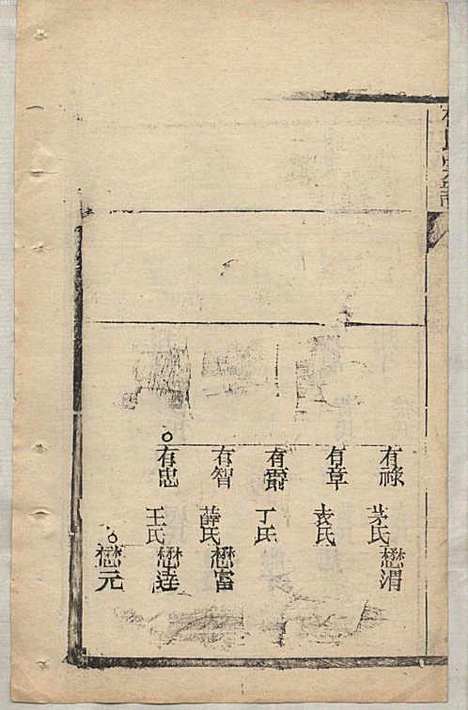 氏宗譜
有祿 茅氏 懋渭
有章 袁氏
有爵 丁氏
有智 薛氏 懋富
有忠 王氏 懋達
懋元